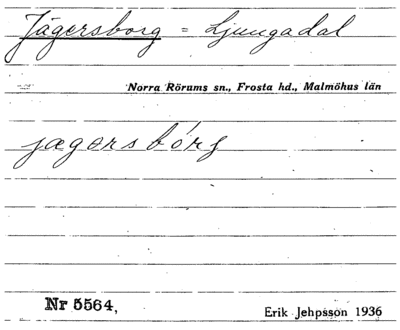 Jägersborg = Ljungadal
Norra Rörums sn., Frosta hd., Malmöhus län
jægersbórg
Nr 5564,
Erik Jehpsson 1936